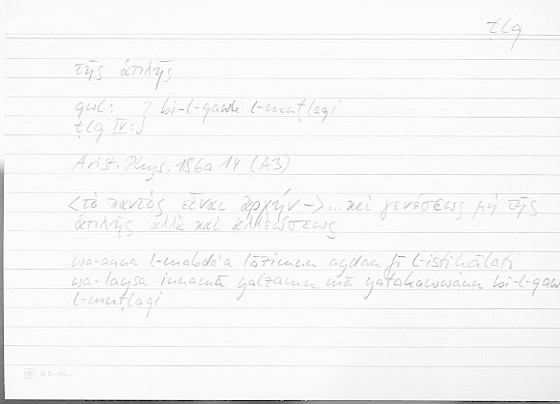 ṭlq
τῆς ἁπλῆς
qwl: } bi-l-qawli l-muṭlaqi
ṭlq IV: }
Arist. Phys. 186a 14 (A3)
<τὸ παντὸς εἶναι ἀρχήν –> ... καὶ γενέσεως μὴ τῆς
ἁπλῆς ἀλλὰ καὶ ἀλλοιώσεως
wa-anna l-mabda'a lāzimun ayḍan fī l-istiḥālati
wa-laysa innamā yalzamu mā yatakawwanu bi-l-qaw
l-muṭlaqi